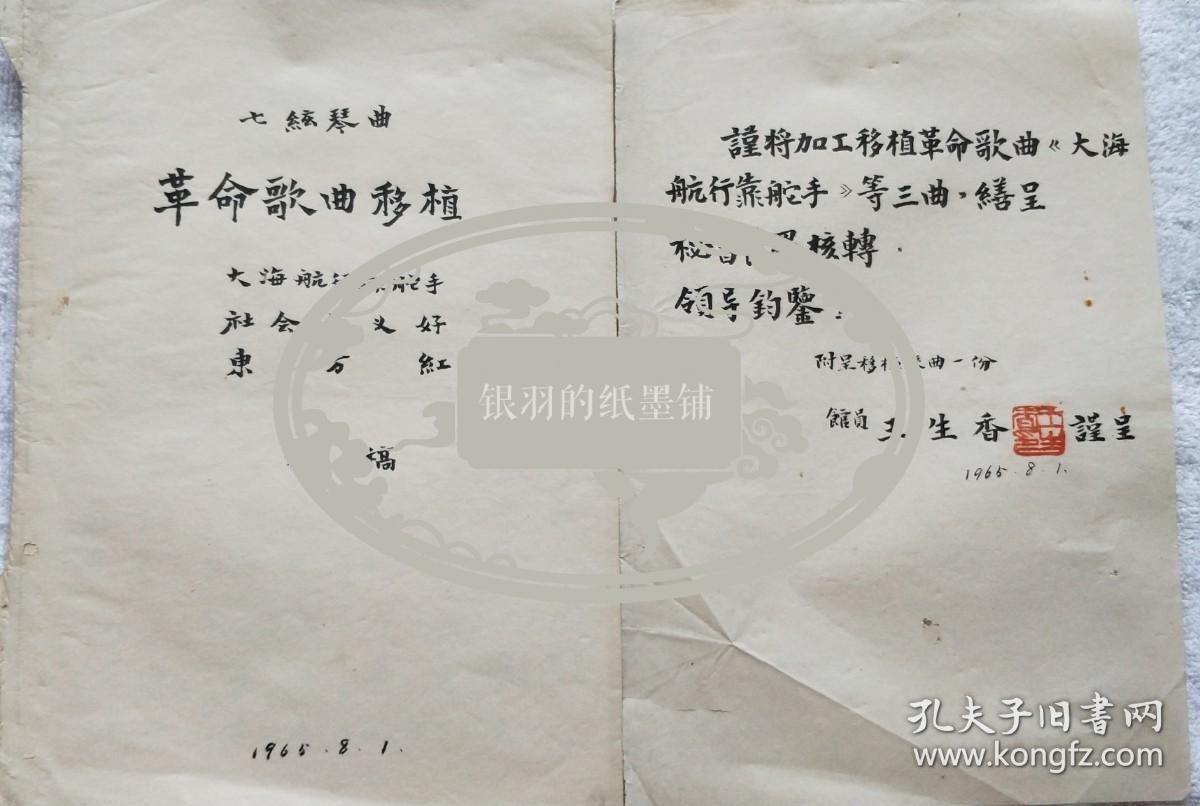 七絃琴曲
革命歌曲移植
大海航行舵手
社会义好
東方紅
稿
1965.8.1.
謹将加工移植革命歌曲《大海
航行靠舵手》等三曲,繕呈
秘書核轉.
領导鈞鑒:
附呈移植琴曲一份
館員 王生香 謹呈
1965.8.1.
银羽的纸墨铺
孔夫子旧书网
www.kongfz.com